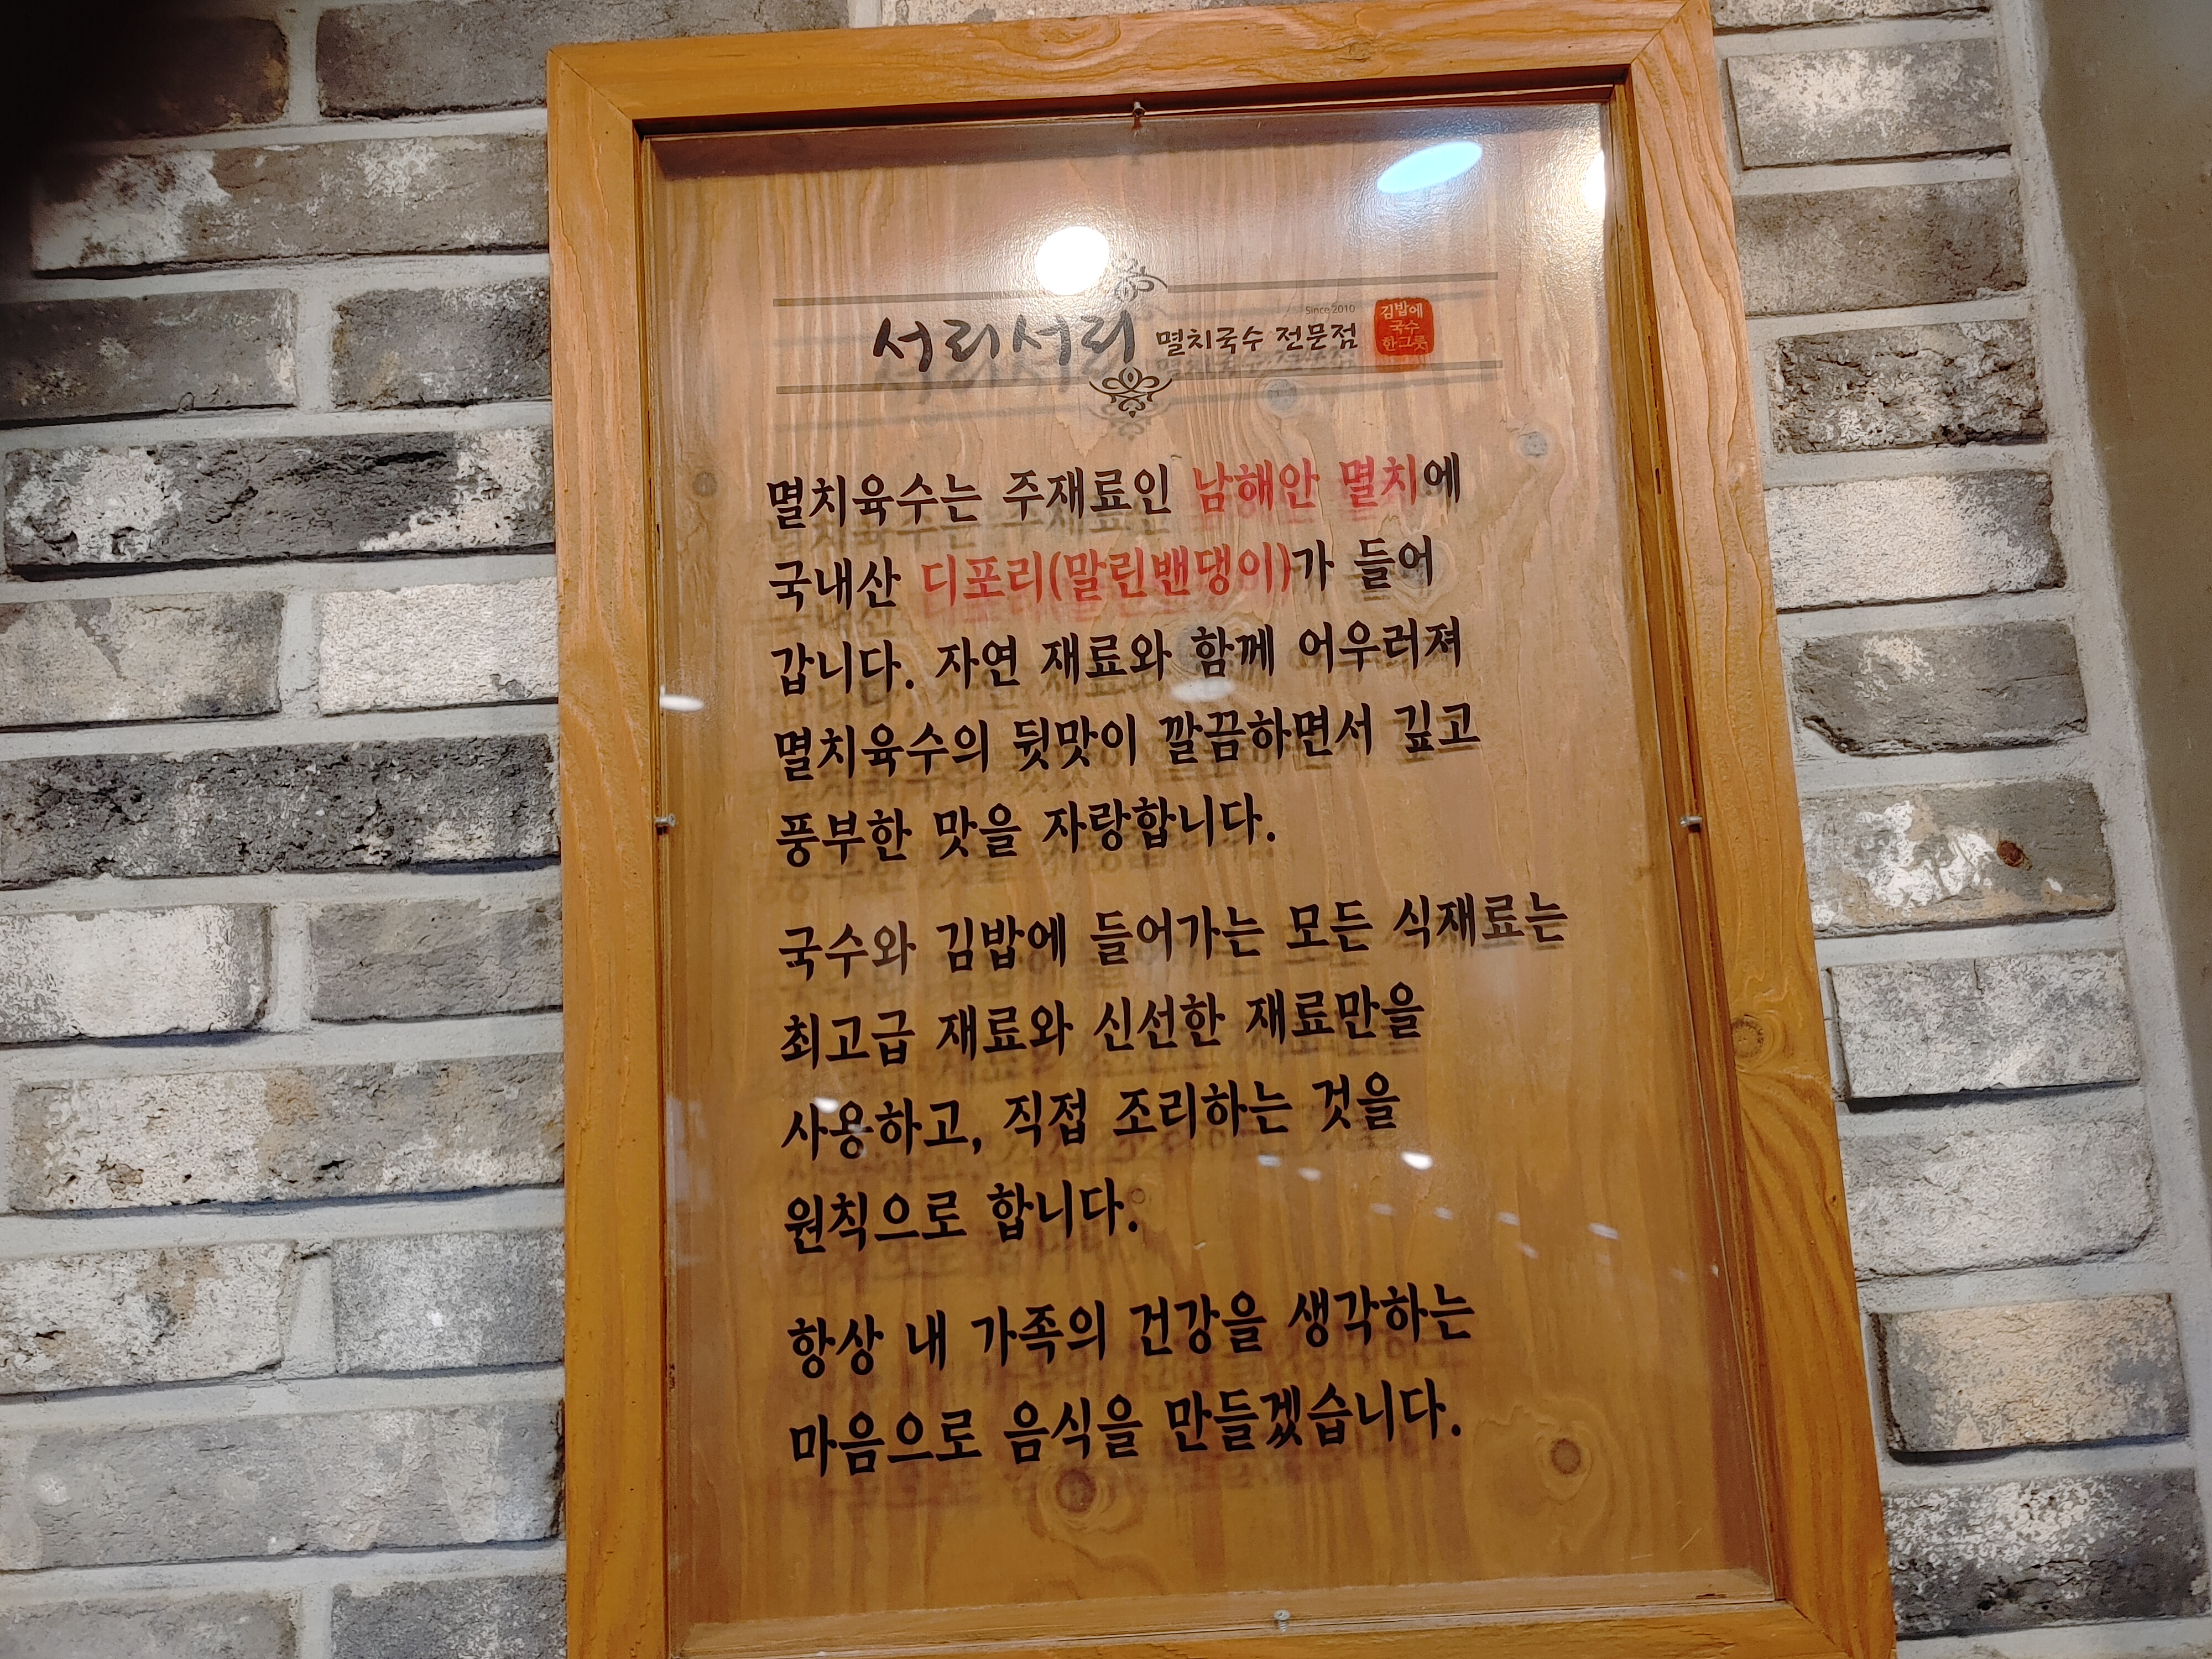 Since 2010
서리서리 멸치국수 전문점
김밥에
국수
한그릇
멸치육수는 주재료인 남해안 멸치에
국내산 디포리(말린밴댕이)가 들어
갑니다. 자연 재료와 함께 어우러져
멸치육수의 뒷맛이 깔끔하면서 깊고
풍부한 맛을 자랑합니다.
국수와 김밥에 들어가는 모든 식재료는
최고급 재료와 신선한 재료만을
사용하고, 직접 조리하는 것을
원칙으로 합니다.
항상 내 가족의 건강을 생각하는
마음으로 음식을 만들겠습니다.